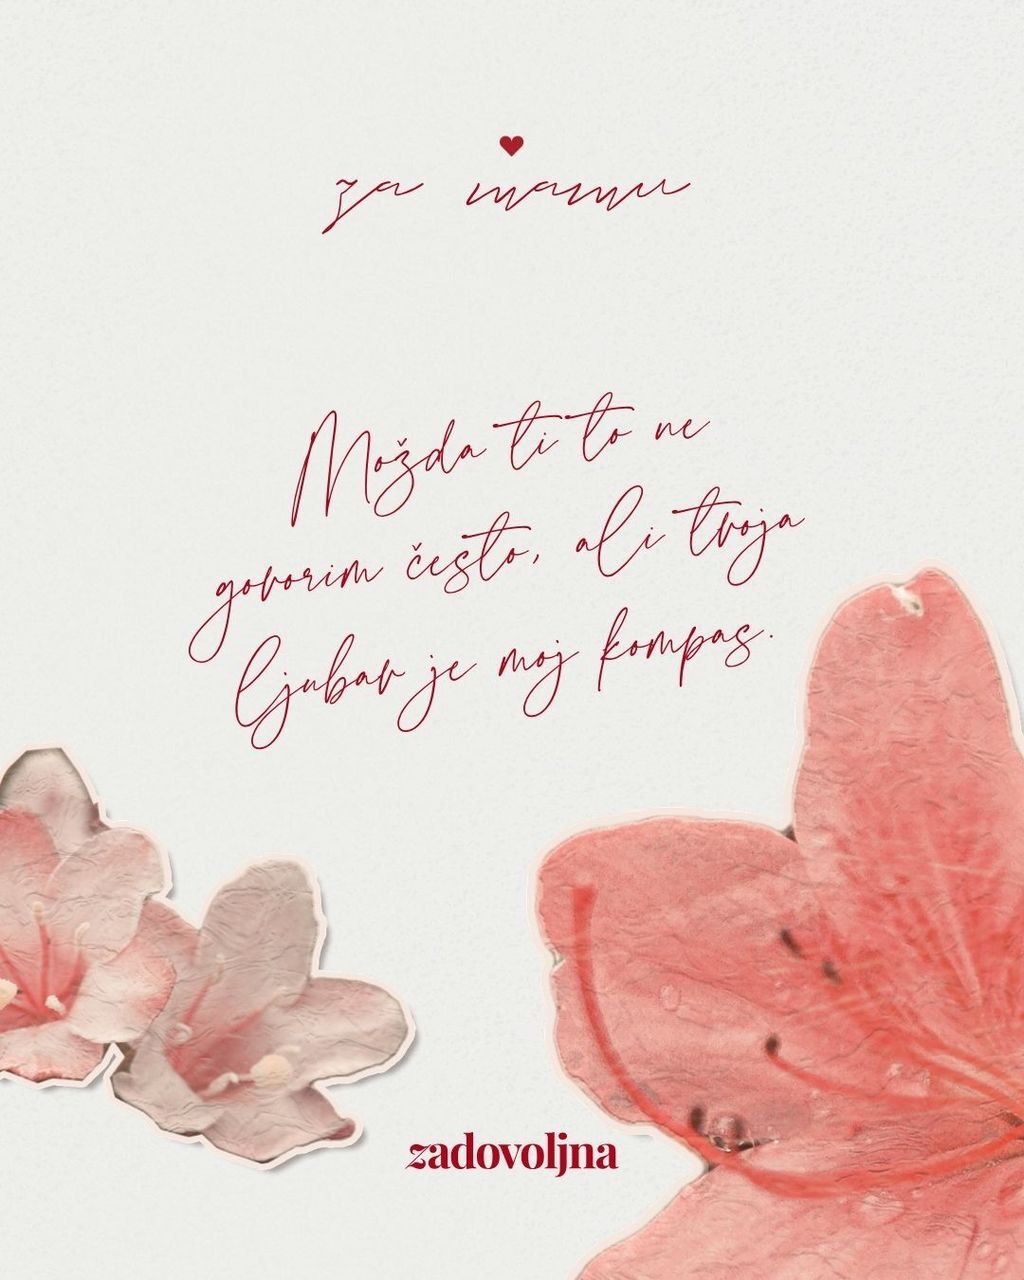 za mamu
Možda ti to ne
govorim često, ali tvoja
ljubav je moj kompas.
zadovoljna